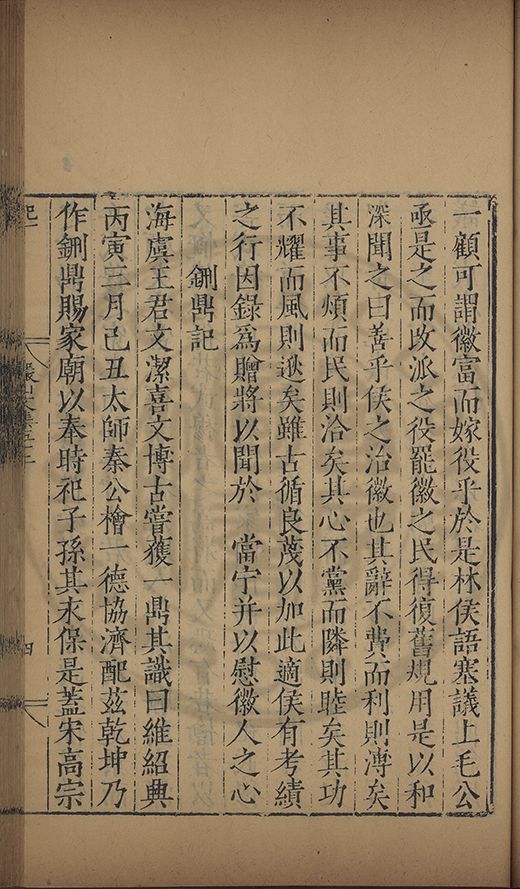 一顧可謂徽富而嫁役乎於是林侯語塞議上毛公
亟是之而改派之役罷徽之民得復舊規用是以和
深聞之曰善乎侯之治徽也其辭不費而利則溥矣
其事不煩而民則洽矣其心不黨而隣則睦矣其功
不耀而風則逖矣雖古循良蔑以加此適侯有考績
之行因錄爲贈將以聞於 當宁并以慰徽人之心
鉶鼎記
海虞王君文潔喜文博古嘗獲一鼎其識曰維紹興
丙寅三月己丑太師秦公檜一德協濟配茲乾坤乃
作鉶鼎賜家廟以奉時祀子孫其永保是蓋宋高宗
四